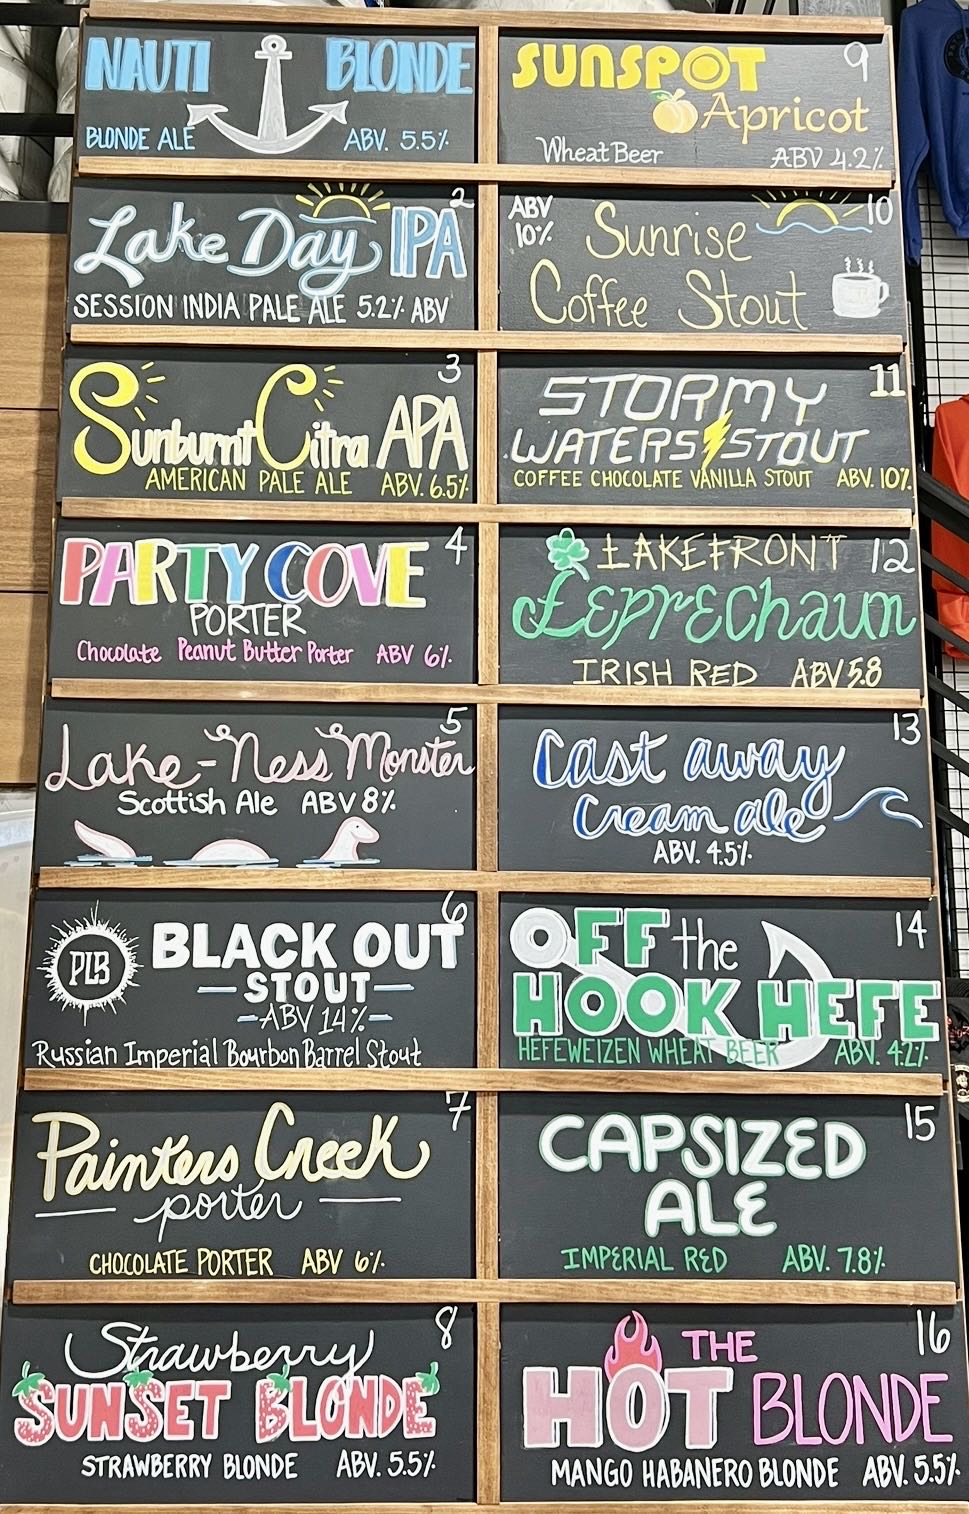 NAUTI BLONDE
BLONDE ALE ABV. 5.5%
2
Lake Day IPA
SESSION INDIA PALE ALE 5.2% ABV
3
Sunburnt Citra APA
AMERICAN PALE ALE ABV. 6.5%
4
PARTY COVE
PORTER
Chocolate Peanut Butter Porter ABV 6%
5
Lake-Ness Monster
Scottish Ale ABV 8%
6
PLB
BLACK OUT
STOUT
ABV 14%
Russian Imperial Bourbon Barrel Stout
7
Painters Creek
porter
CHOCOLATE PORTER ABV 6%
8
Strawberry
SUNSET BLONDE
STRAWBERRY BLONDE ABV. 5.5%
9
SUNSPOT
Apricot
Wheat Beer ABV 4.2%
10
ABV
10%
Sunrise
Coffee Stout
11
STORMY
WATERS STOUT
COFFEE CHOCOLATE VANILLA STOUT ABV. 10%
12
LAKEFRONT
LEprEChaun
IRISH RED ABV 5.8
13
Cast away
Cream ale
ABV. 4.5%
14
OFF the
HOOK HEFE
HEFEWEIZEN WHEAT BEER ABV. 4.2%
15
CAPSIZED
ALE
IMPERIAL RED ABV. 7.8%
16
THE
HOT BLONDE
MANGO HABANERO BLONDE ABV. 5.5%